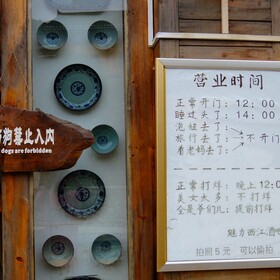 狗莫止入内
dogs are forbidden
营业时间
正常开门：12:00
睡过头了：14:00
泡妞去了：
旅行去了：不开门
看老妈去了：
正常打烊：晚上12:0
美女太多：不打烊
全是爷们儿：提前打烊
魅力西江
拍照5元 可以偷拍